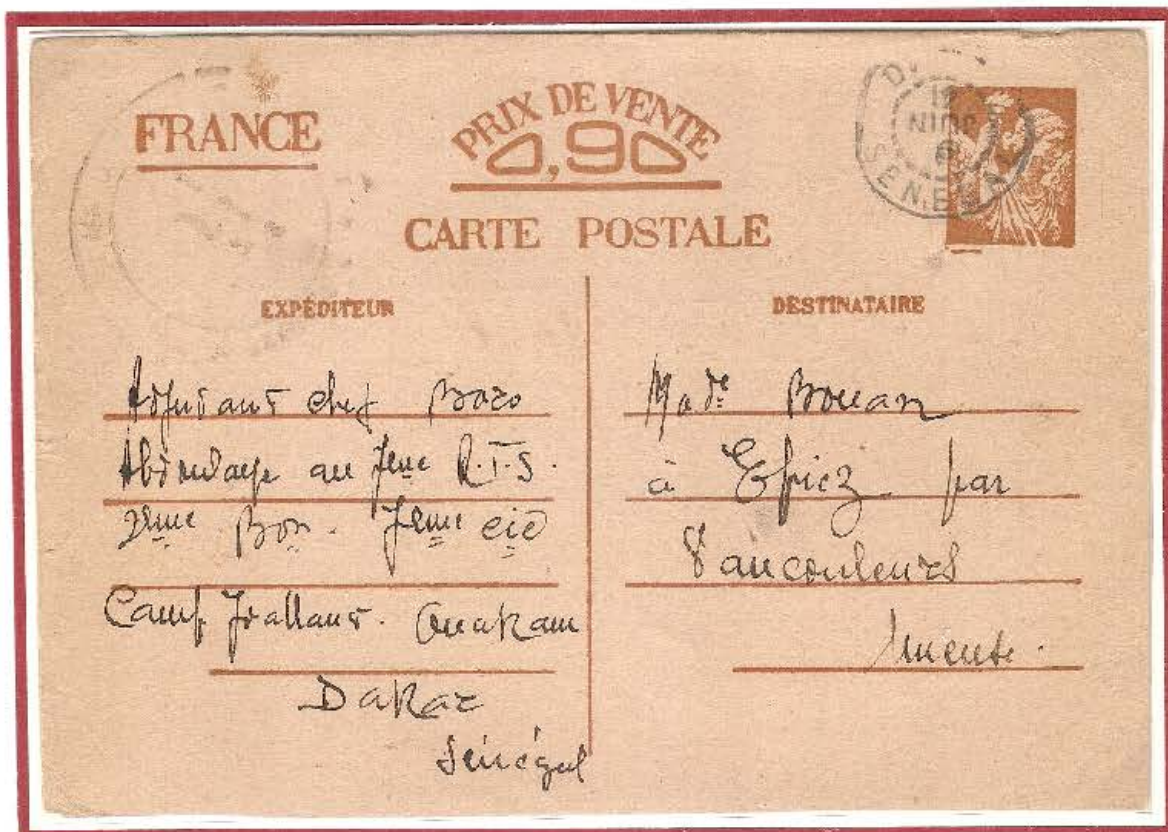 FRANCE
PRIX DE VENTE
0,90
CARTE POSTALE
JUIN
SENEGAL
EXPÉDITEUR
Adjudant chef Bozo
au 7eme R.T.S.
2eme Bon. 7eme cie
Camp Ouakam
Dakar
Sénégal
DESTINATAIRE
Made Bouan
à Epiez par
Vaucouleurs
Meuse.